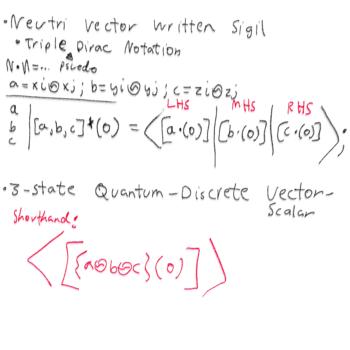 •Neutri Vector Written Sigil
•Triple Dirac Notation
N•N=... Psuedo
a=xi⊗xj; b=yi⊗yj; c=zi⊗zj
LHS MHS RHS
a
b |[a,b,c]*(0) = <[a•(0)]|[b•(0)]|[c•(0)]>;
c
•3-state Quantum-Discrete Vector-
Scalar
Shorthand:
<[{a⊖b⊖c}(0)]>